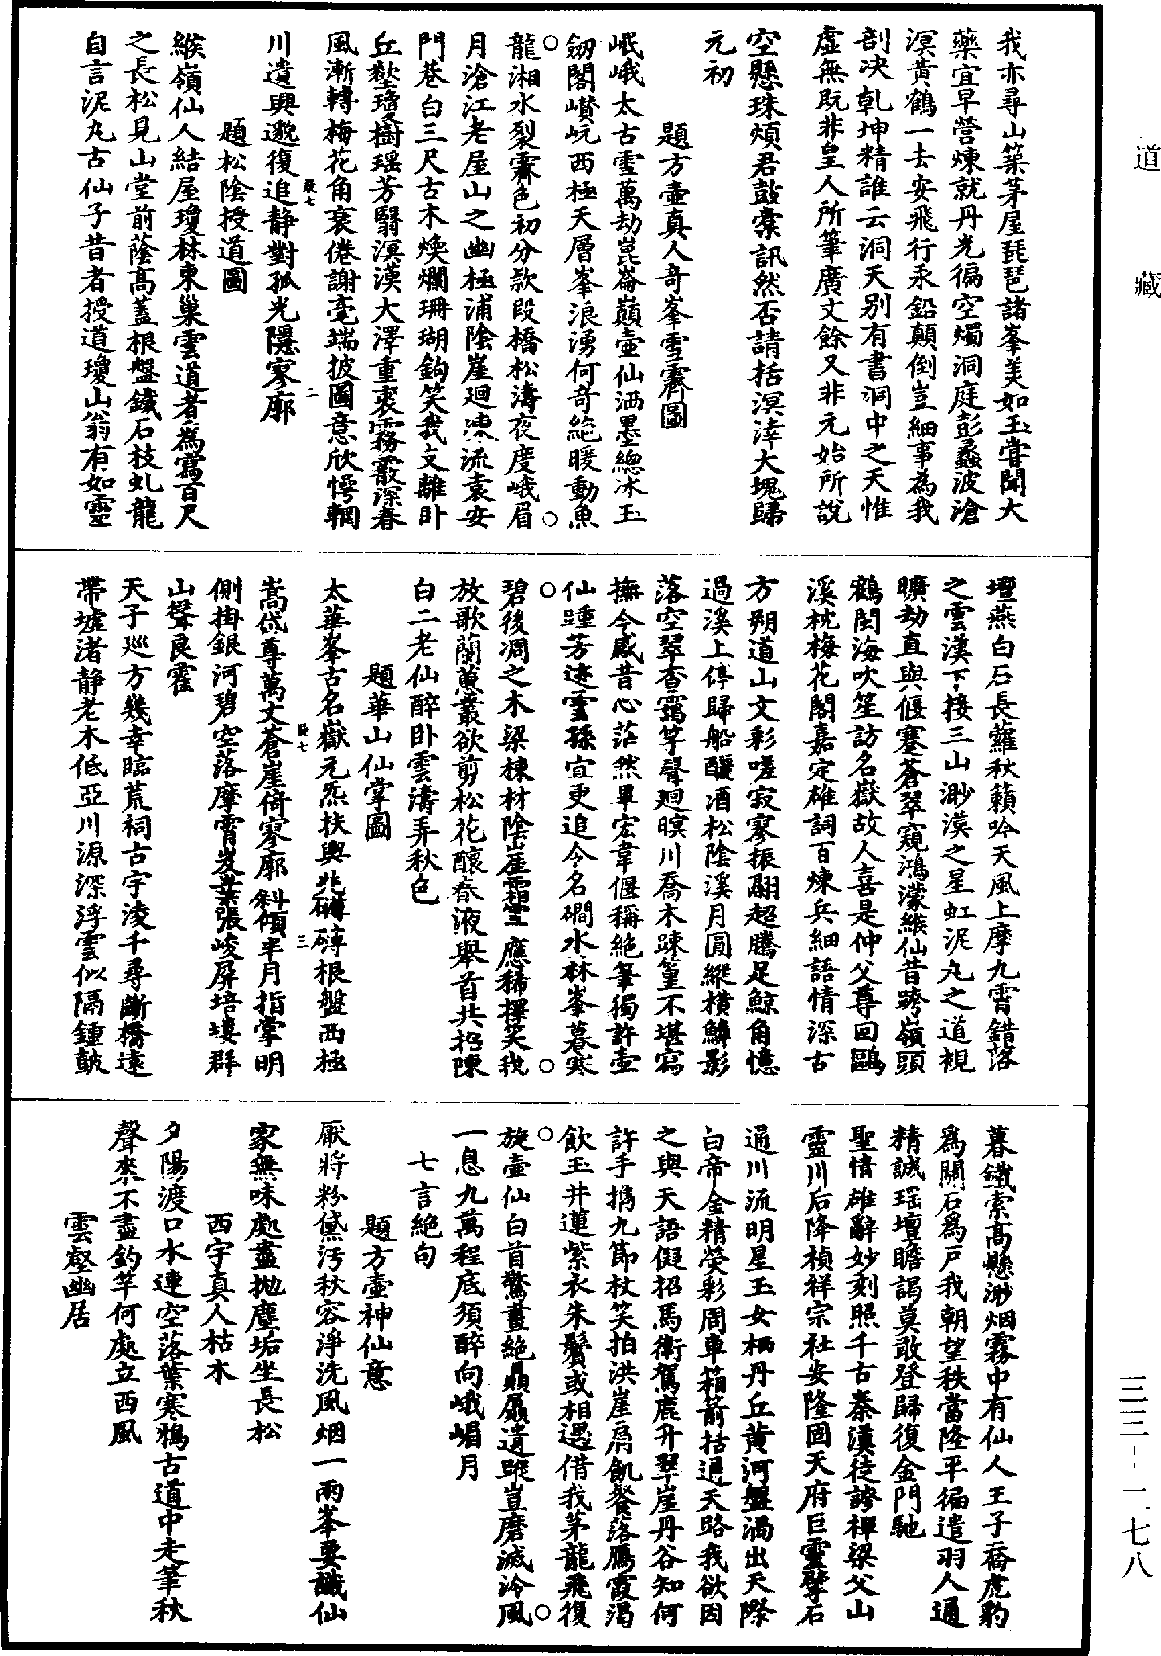 道藏
三三—一七八
我亦尋山築茅屋琵琶諸峯美如玉嘗聞大
藥宜早營煉就丹光徧空燭洞庭彭蠡波滄
溟黃鶴一去安飛行汞鉛顛倒豈細事為我
剖决乾坤精誰云洞天别有書洞中之天惟
虛無既非皇人所筆廣文餘又非元始所說
空懸珠煩君鼓橐訊然否請括溟涬大塊歸
元初
題方壺真人奇峯雪霽圖
岷峨太古雪萬劫崑崙巔壺仙洒墨總冰玉
劒閣巑岏西極天層峯浪湧何奇絶暖動魚
龍湘水裂霽色初分款段橋松濤夜度峨眉
月滄江老屋山之幽極浦陰崖迴凍流袁安
門巷白三尺古木煥爛珊瑚鉤笑我支離卧
丘壑瓊樹瑶芳翳溟漠大澤重裘霧霰深春
風漸轉梅花角衰倦謝毫端披圖意欣愕輞
川遺興邈復追静對孤光隱寥廓
題松陰授道圖
緱嶺仙人結屋瓊林東巢雲道者為寫百尺
之長松見山堂前蔭高蓋根盤鐵石枝虬龍
自言泥丸古仙子昔者授道瓊山翁有如靈
壇燕白石長蘿秋籟吟天風上摩九霄錯落
之雲漢下接三山渺漠之星虹泥丸之道視
曠劫直與偃蹇蒼翠窺鴻濛緱仙昔跨嶺頭
鶴閬海吹笙訪名嶽故人喜是仲父尊回鷗
溪枕梅花閣嘉定碓詞百煉兵細語情深古
方朔道山文彩嗟寂寥振翮超騰足鯨角憶
過溪上停歸船釃酒松陰溪月圓縱橫鱗影
落空翠杳靄竽聲迴暝川喬木踈篁不堪寫
撫今感昔心茫然畢宏韋偃稱絶筆獨許壺
仙踵芳迹雪孫宜更追今名磵水林峯暮寒
碧後凋之木梁棟材陰崖霜雪應稀擇笑我
放歌蘭蕙叢欲剪松花釀春液舉首共招陳
白二老仙醉卧雲濤弄秋色
題華山仙掌圖
太華峯古名嶽元炁扶輿兆磅礴根盤西極
嵩岱尊萬丈蒼崖倚寥廓斜傾半月指掌明
側掛銀河碧空落摩霄岌嶪張峻屏培塿群
山聲良霍
天子廵方幾幸臨荒祠古宇淩千尋斷橋遠
帶墟渚静老木低亞川源深浮雲似隔鍾皷
暮鐵索高懸渺烟霧中有仙人王子喬虎豹
為關石為戸我朝望秩當隆平徧遣羽人通
精誠瑶壇瞻謁莫敢登歸復金門馳
聖情雄辭妙刻照千古秦漢徒誇禪梁父山
靈川后降楨祥宗社安隆固天府巨靈擘石
通川流明星玉女栖丹丘黃河盤渦出天際
白帝金精熒彩周車箱箭括通天路我欲因
之與天語儗招馬衛駕鹿升翠崖丹谷知何
許手搊九節杖笑拍洪崖肩飢餐落鴈霞渴
飲玉井蓮紫衣朱鬢或相遇借我茅龍飛復
旋壺仙白首驚畫絶贔屭遺蹤豈磨滅泠風
一息九萬程底須醉向峨嵋月
七言絶句
題方壺神仙意
厭將粉黛汚秋容淨洗風烟一兩峯要識仙
家無味處盡抛塵垢坐長松
西宇真人枯木
夕陽渡口水連空落葉寒鴉古道中走筆秋
聲來不盡釣竿何處立西風
雲壑幽居